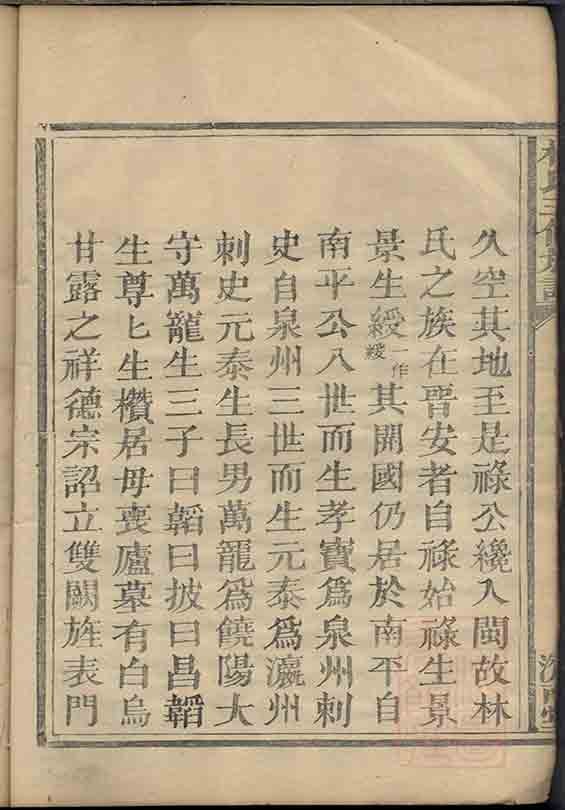 久空其地至是祿公纔入閩故林
氏之族在晋安者自祿始祿生景
景生綬一作綾其開國仍居於南平自
南平公八世而生孝寶爲泉州刺
史自泉州三世而生元泰爲瀛州
刺史元泰生長男萬龍爲饒陽大
守萬寵生三子曰韜曰披曰昌韜
生尊匕生欑居母喪廬墓有白烏
甘露之祥德宗詔立雙闕旌表門